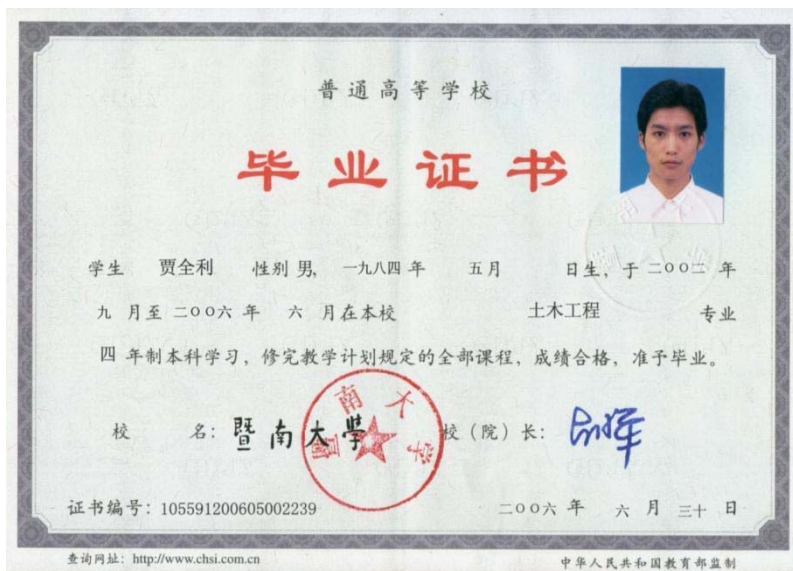 普通高等学校
毕业证书
学生 贾全利 性别 男, 一九八四 年 五月 日生, 于 二〇〇二 年
九 月至 二〇〇六 年 六 月在本校 土木工程 专业
四 年制本科学习, 修完教学计划规定的全部课程, 成绩合格, 准予毕业。
校 名: 暨南大學 校(院)长:
暨南大学
证书编号: 105591200605002239 二〇〇六 年 六 月 三十 日
查询网址: http://www.chsi.com.cn 中华人民共和国教育部监制